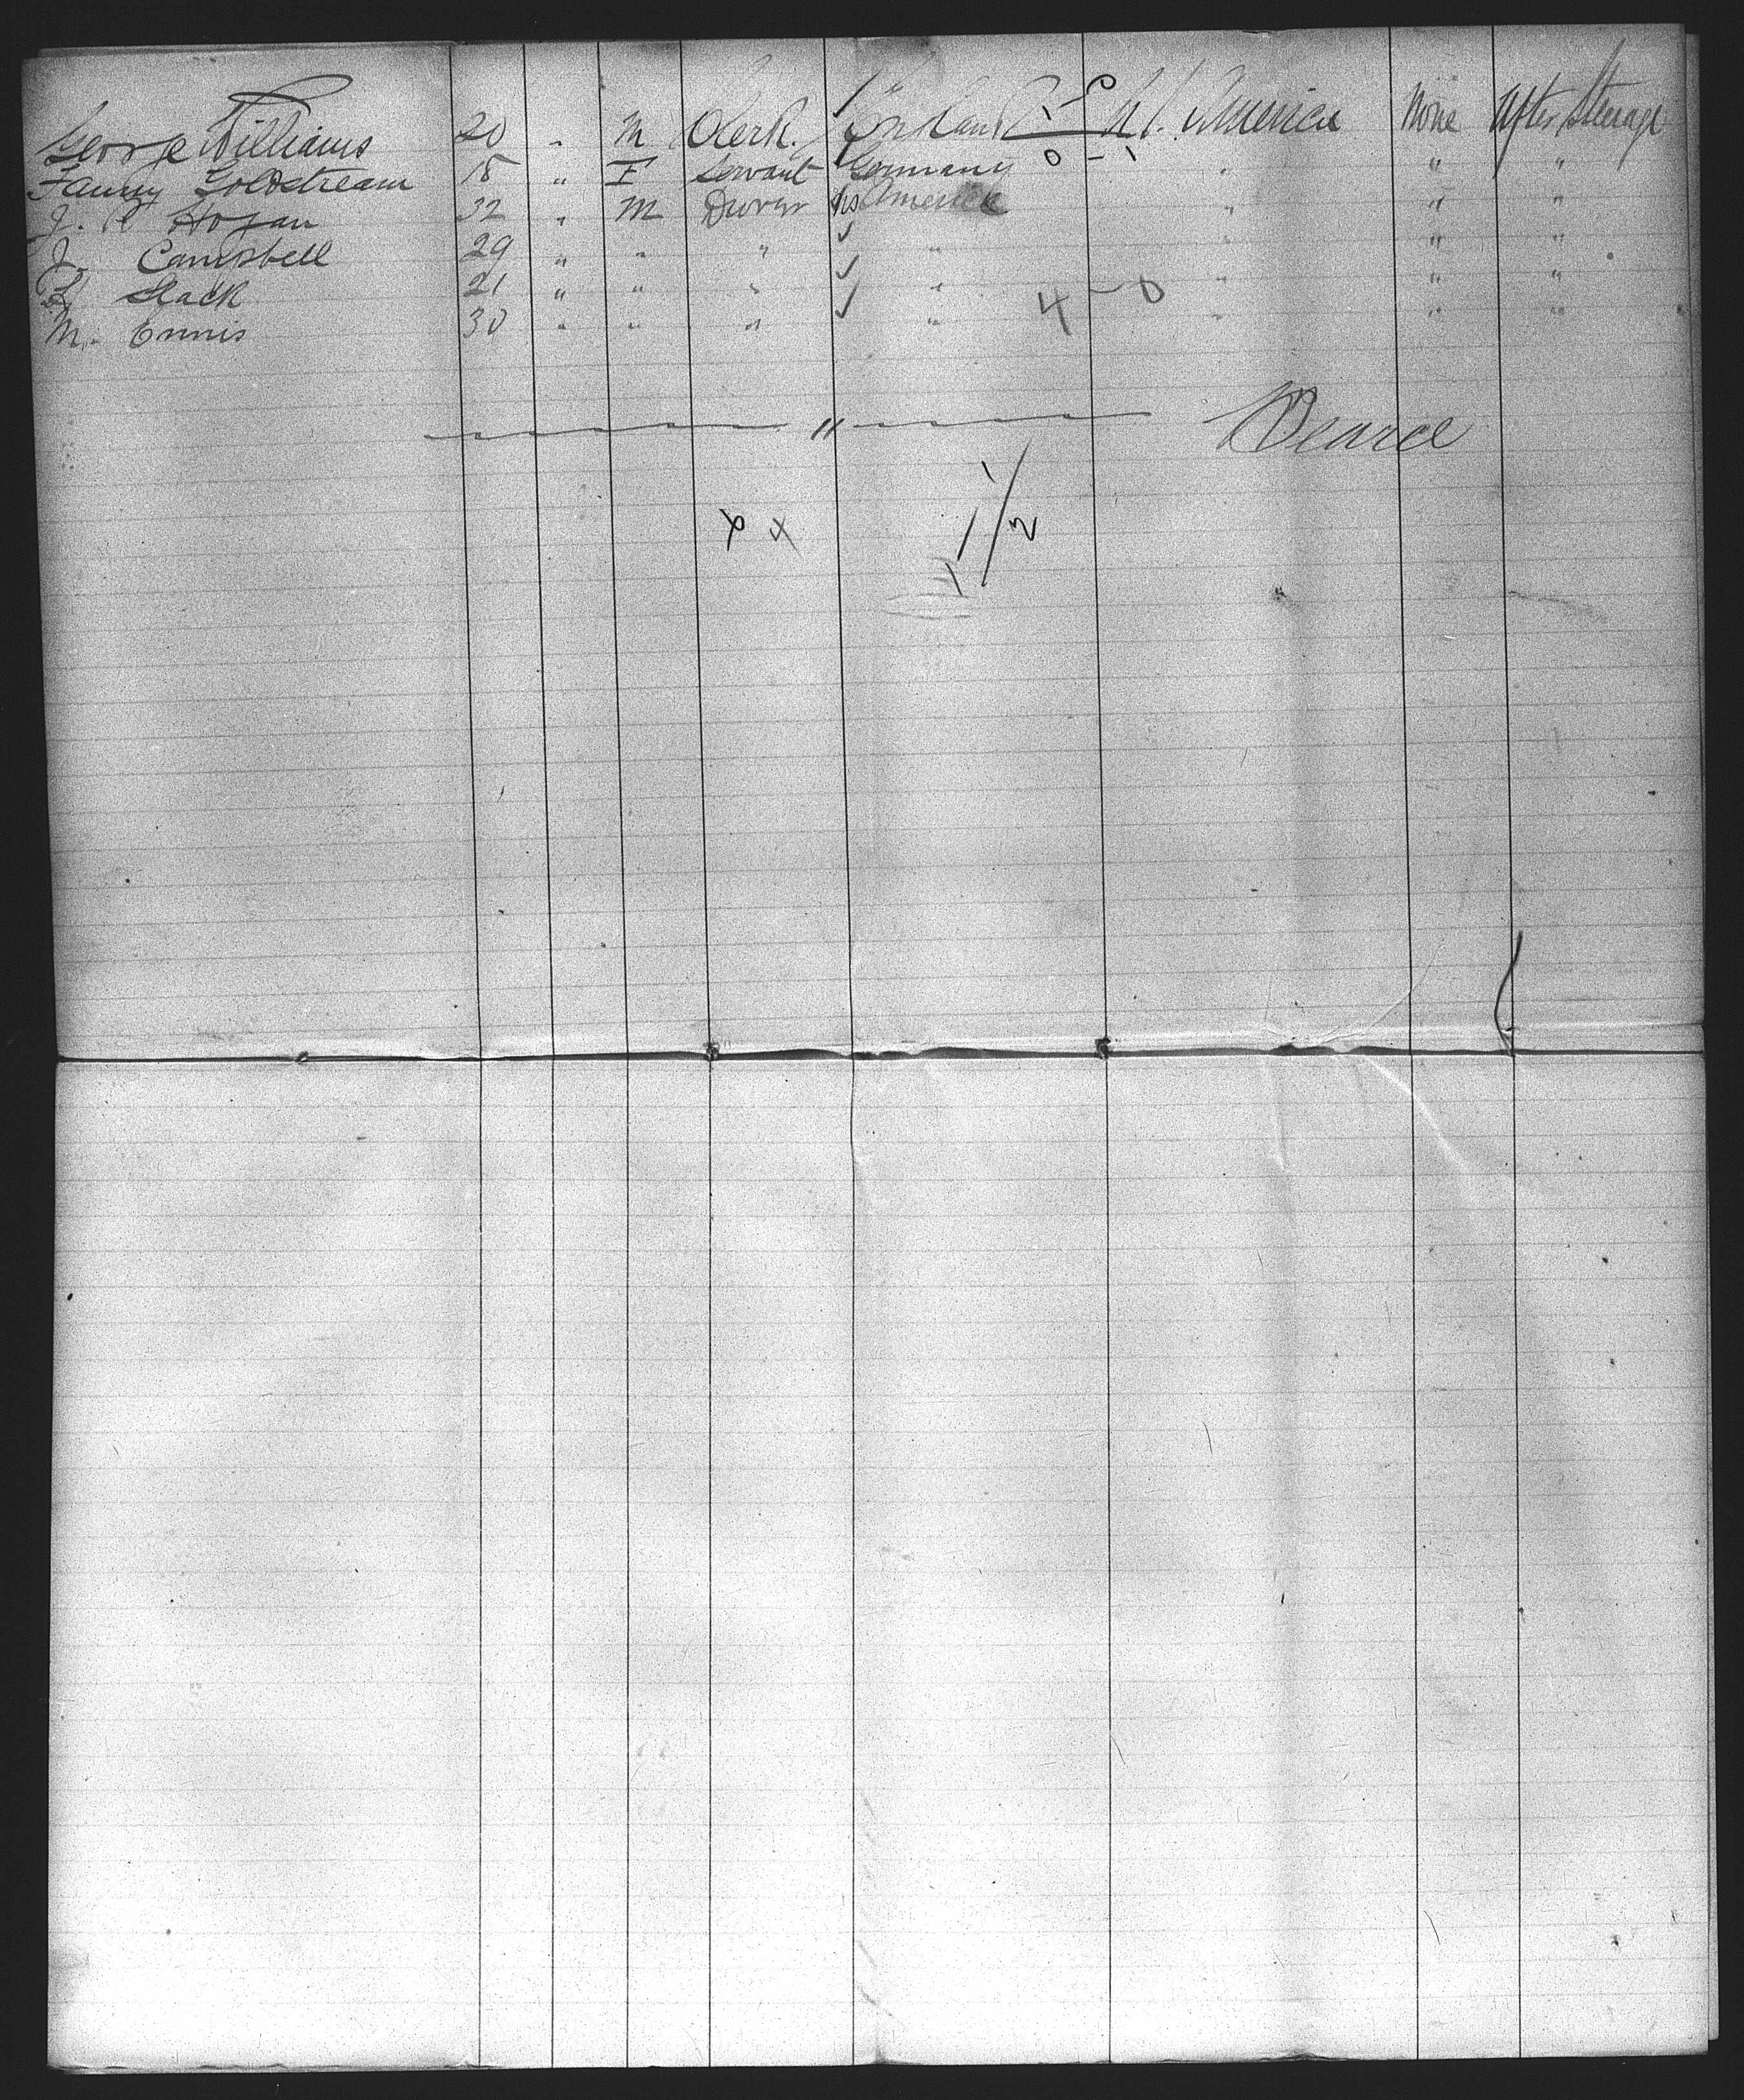 George Williams 20 " M Clerk England 1-0 U.S. America None After Steerage
Fanny Goldstream 18 " F Servant Germany 0-1 " " "
J. Hogan 32 " M Drover U.S America " " "
J. Campbell 29 " " " " " " "
Slack 21 " " " " " " "
M. Ennis 30 " " " " 4-0 " " "
" Pearce
1/2